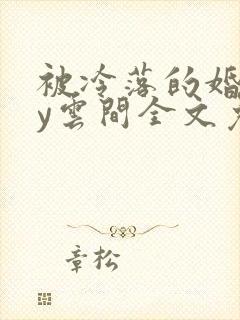 被冷落的婚
y雲間全文
章松